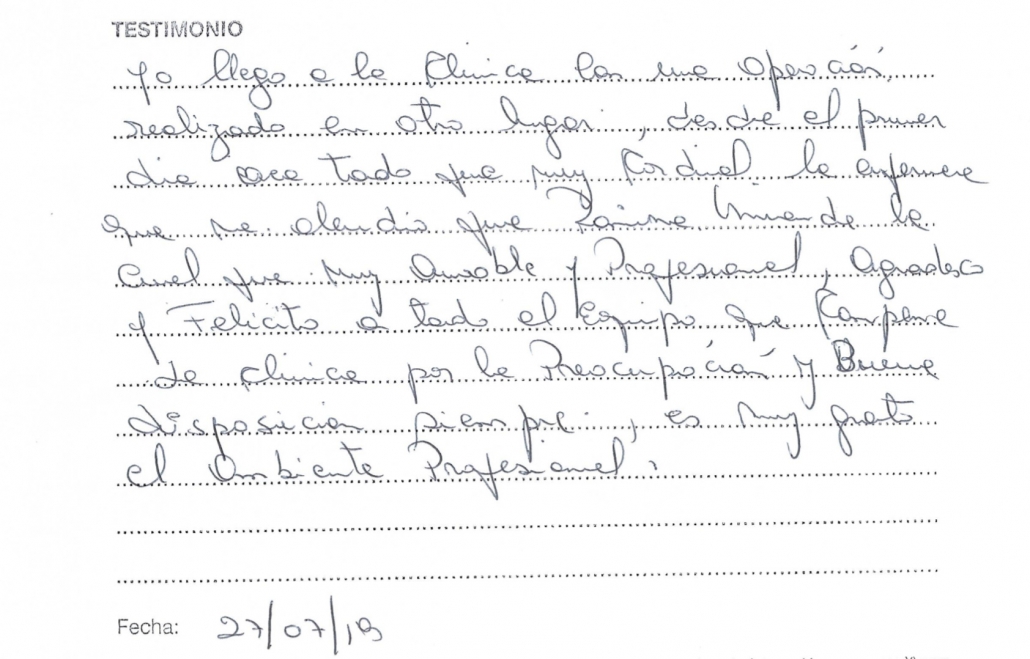 TESTIMONIO
Yo llego a la Clinica con una Operación,
realizada en otro lugar, desde el primer
dia ... todo fue muy Cordial la enfermera
que me atendio fue ... la
Cual fue muy Amable y Profesional, Agradesco
y Felicito a todo el Equipo que Compone
de clinica por la Preocupación y Buena
disposicion siempre, es muy grato
el Ambiente Profesional.
Fecha: 27/07/19